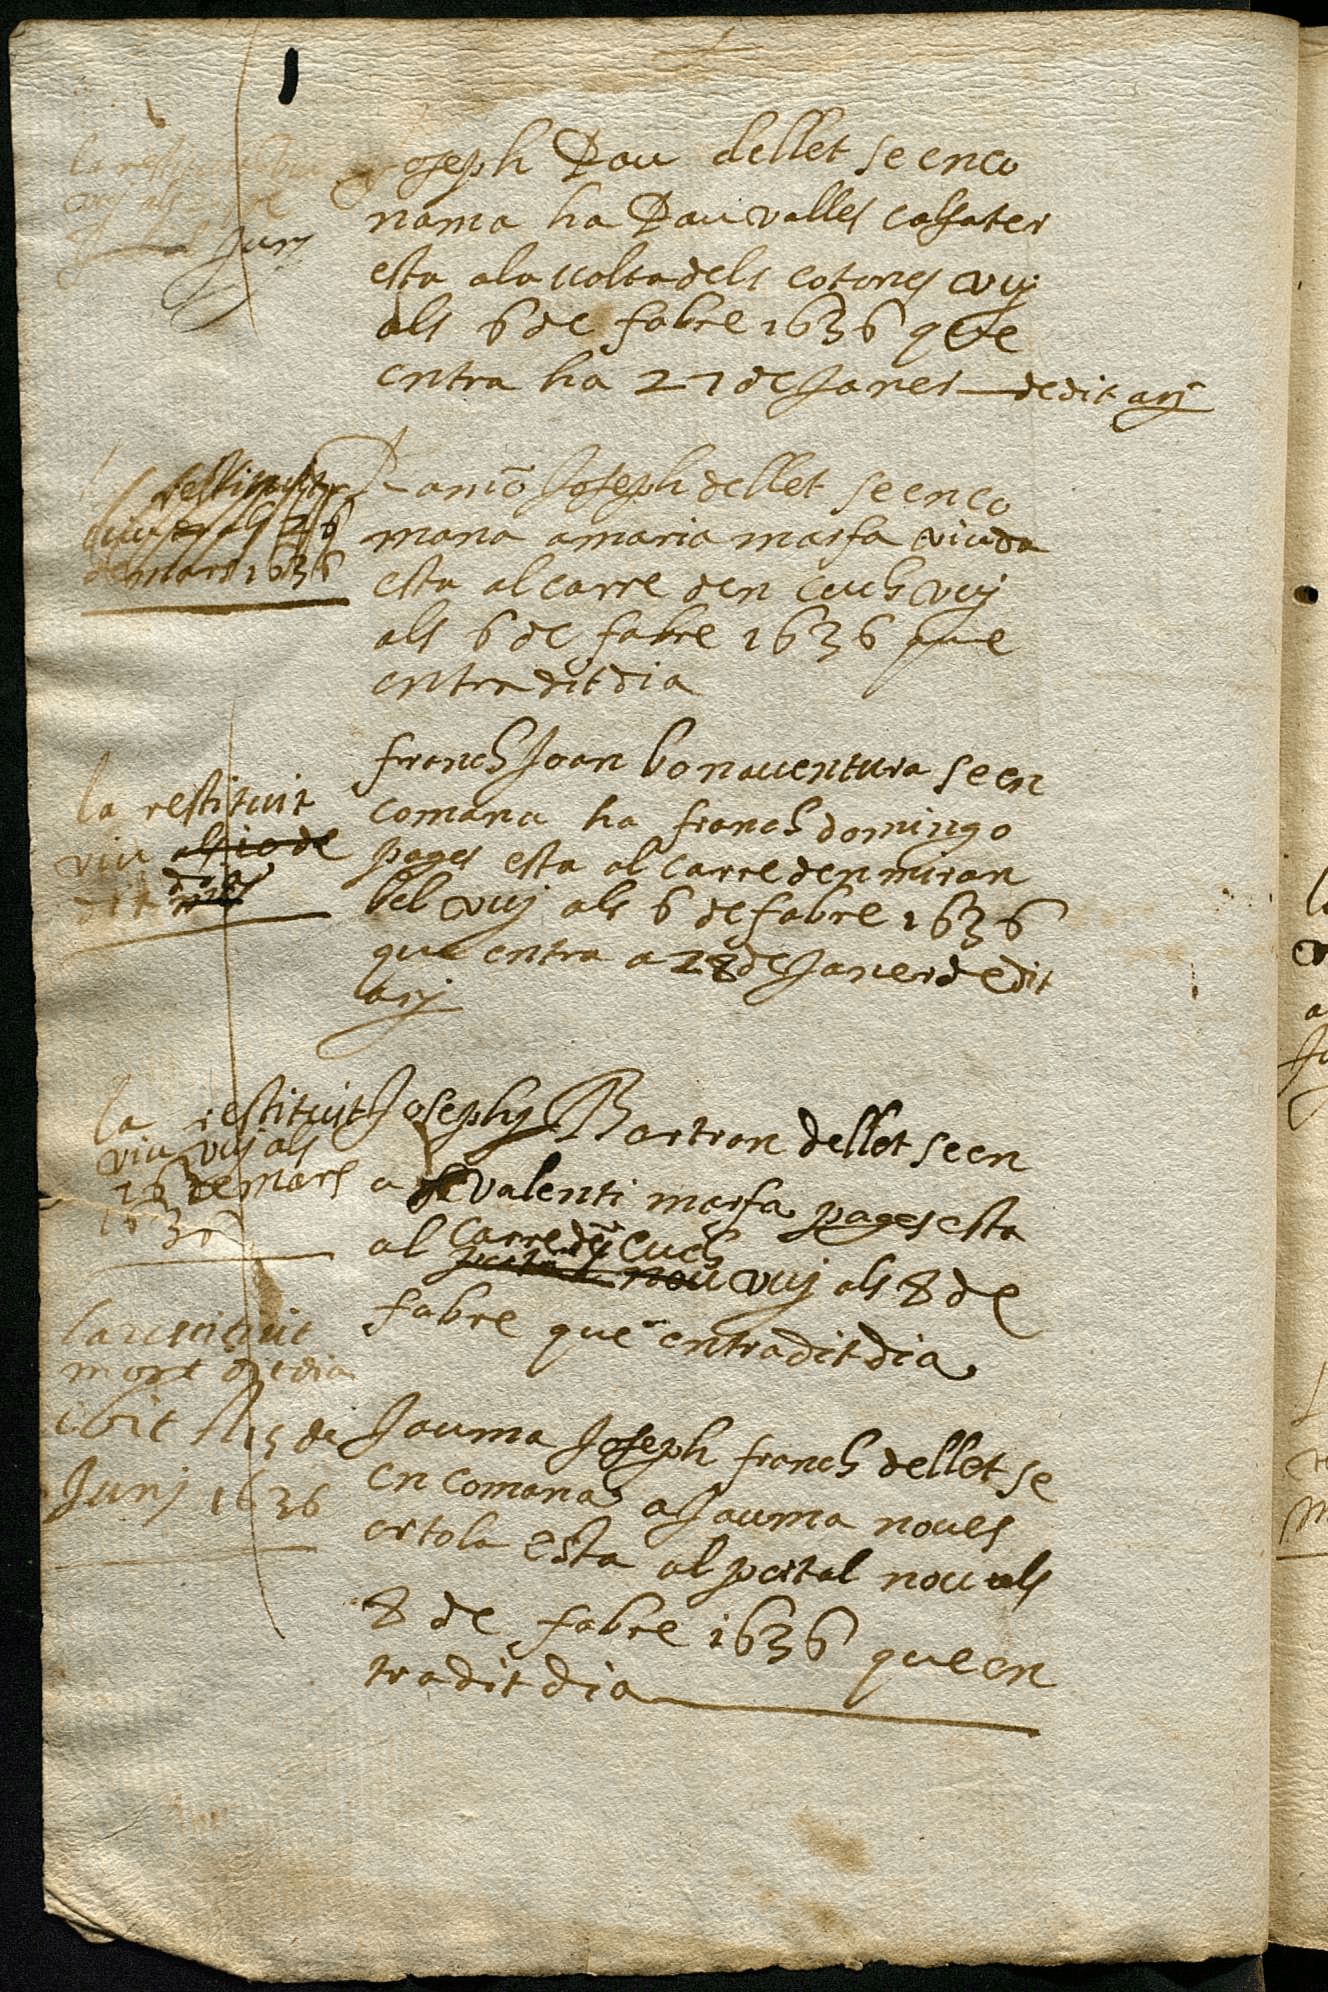 la restituit
vuj als
Junj
Joseph Pau dellet se enco
nama ha Pau valles calsater
esta ala volta dels cotones vuj
als 6 de fabre 1636 que
entra ha 27 de Janer dedit anj
restituit
als 26
de mars 1636
Ramō Joseph dellet se enco
mana a maria masfa viuda
esta al carre den Cuch vuj
als 6 de fabre 1636 que
entra dit dia
la restituit
viu als 10 de
dia
dit mes
franch Joan bonaventura se en
comana ha franch domingo
pages esta al carre den miran
bel vuj als 6 de fabre 1636
que entra a 28 de Janer de dit
anj
la restituit
viu vuj als
26 de mars
1636
Joseph Bartran dellet se en
a valenti masfa pages esta
al carre dē Cuch
portal nou vuj als 8 de
fabre que entra dit dia
la restituit
mort dit dia
obit als 15 de
Junj 1636
Jauma Joseph franch dellet se
en comana a Jauma noves
ortola esta al portal nou als
8 de fabre 1636 que en
tra dit dia